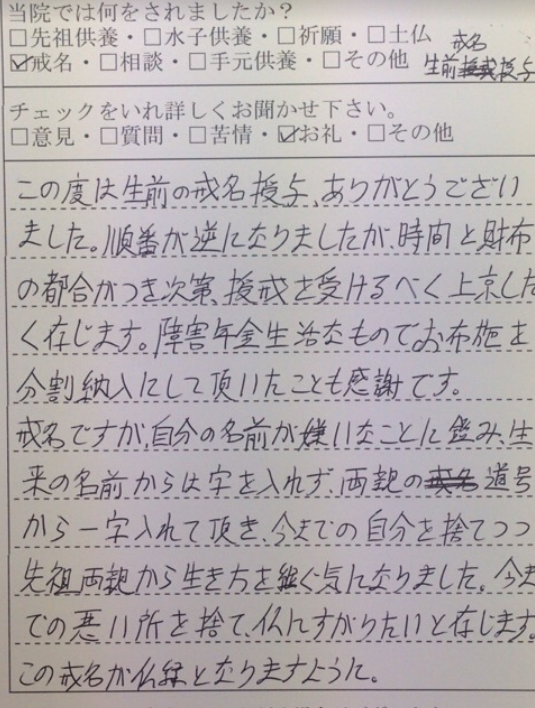 当院では何をされましたか？
□先祖供養・□水子供養・□祈願・□土仏
☑戒名・□相談・□手元供養・□その他 戒名
生前授与
チェックをいれ詳しくお聞かせ下さい。
□意見・□質問・□苦情・☑お礼・□その他
この度は生前の戒名授与、ありがとうござい
ました。順番が逆になりましたが、時間と財布
の都合がつき次第、授戒を受けるべく上京した
く存じます。障害年金生活なものでお布施を
分割納入にして頂いたことも感謝です。
戒名ですが、自分の名前が嫌いなことに鑑み、生
来の名前からは字を入れず、両親の道号
から一字入れて頂き、今までの自分を捨てつつ
先祖両親から生き方を継ぐ気になりました。今ま
での悪い所を捨て、仏にすがりたいと存じます。
この戒名が仏縁となりますように。